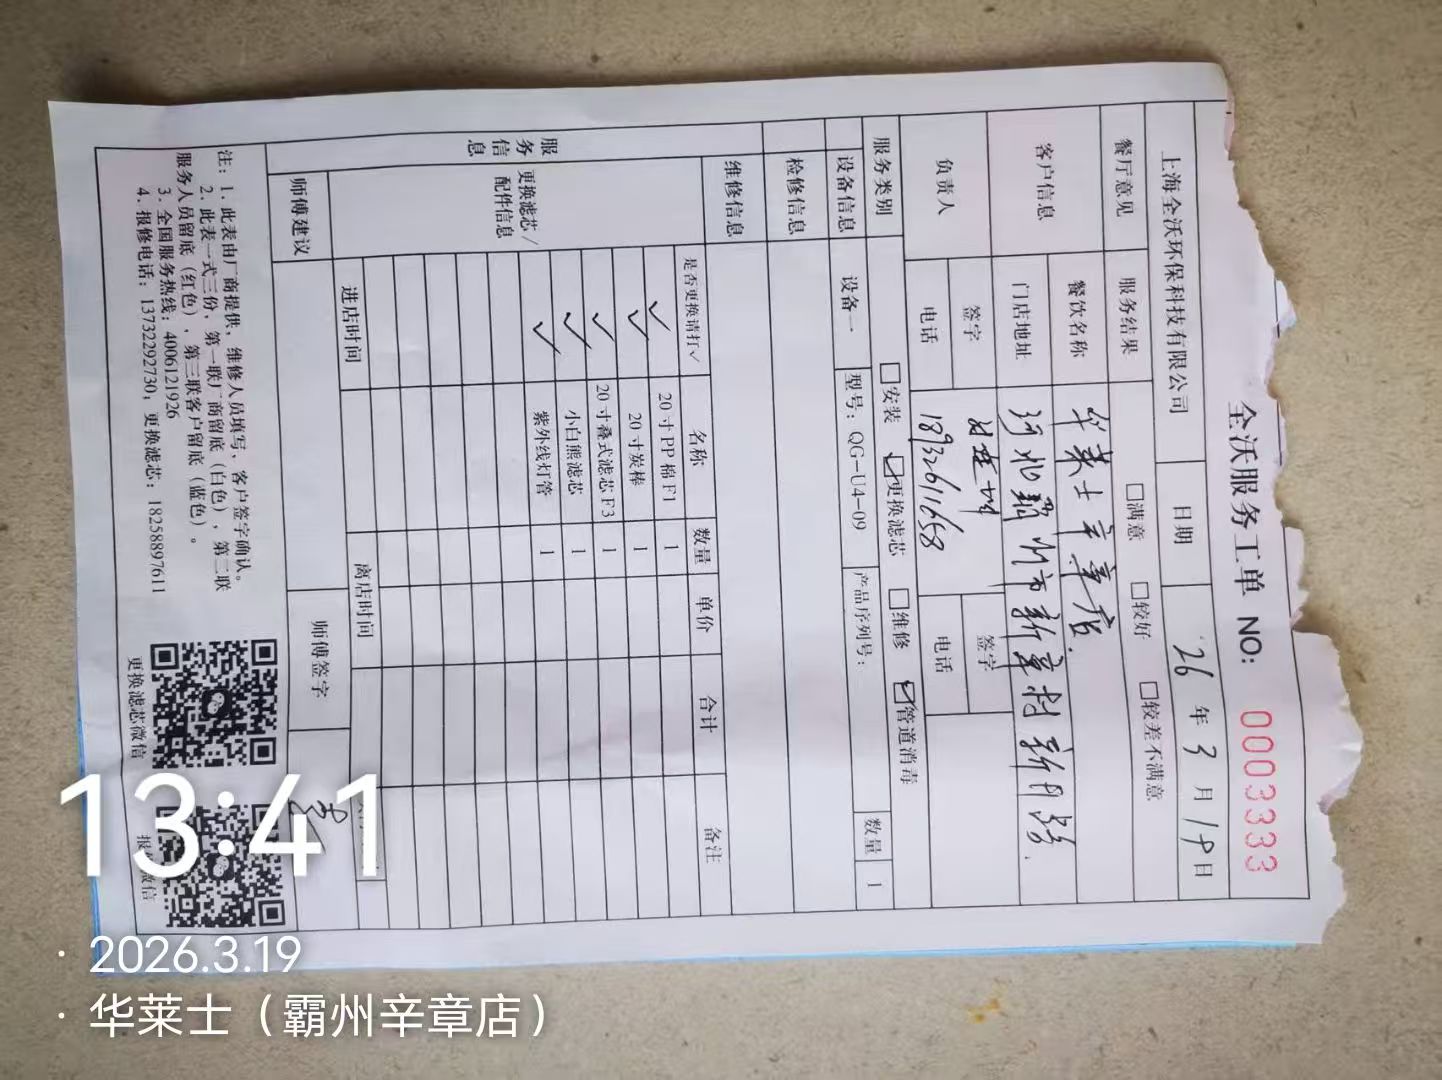 全沃服务工单 NO: 0003333
上海全沃环保科技有限公司 日期 26年3月19日
餐厅意见 服务结果 □满意 □较好 □较差不满意
客户信息 餐饮名称 华莱士辛章店
门店地址 河北霸州市新章村新月路
负责人 签字 签字
电话 18932611658 电话
服务类别 □安装 ☑更换滤芯 □维修 ☑管道消毒
设备信息 设备一 型号: QG-U4-09 产品序列号: 数量 1
检修信息
维修信息
服务信息
更换滤芯/配件信息
是否更换请打✓ 名称 数量 单价 合计 备注
✓ 20寸PP棉F1 1
✓ 20寸炭棒 1
✓ 20寸叠式滤芯F3 1
✓ 小白熊滤芯 1
✓ 紫外线灯管 1
进店时间 离店时间
师傅建议 师傅签字
注: 1. 此表由厂商提供, 维修人员填写, 客户签字确认。
2. 此表一式三份, 第一联厂商留底(白色), 第二联
服务人员留底(红色), 第三联客户留底(蓝色)。
3. 全国服务热线: 4006121926
4. 报修电话: 13732292730; 更换滤芯: 18258897611
更换滤芯微信
13:41
· 2026.3.19
· 华莱士（霸州辛章店）